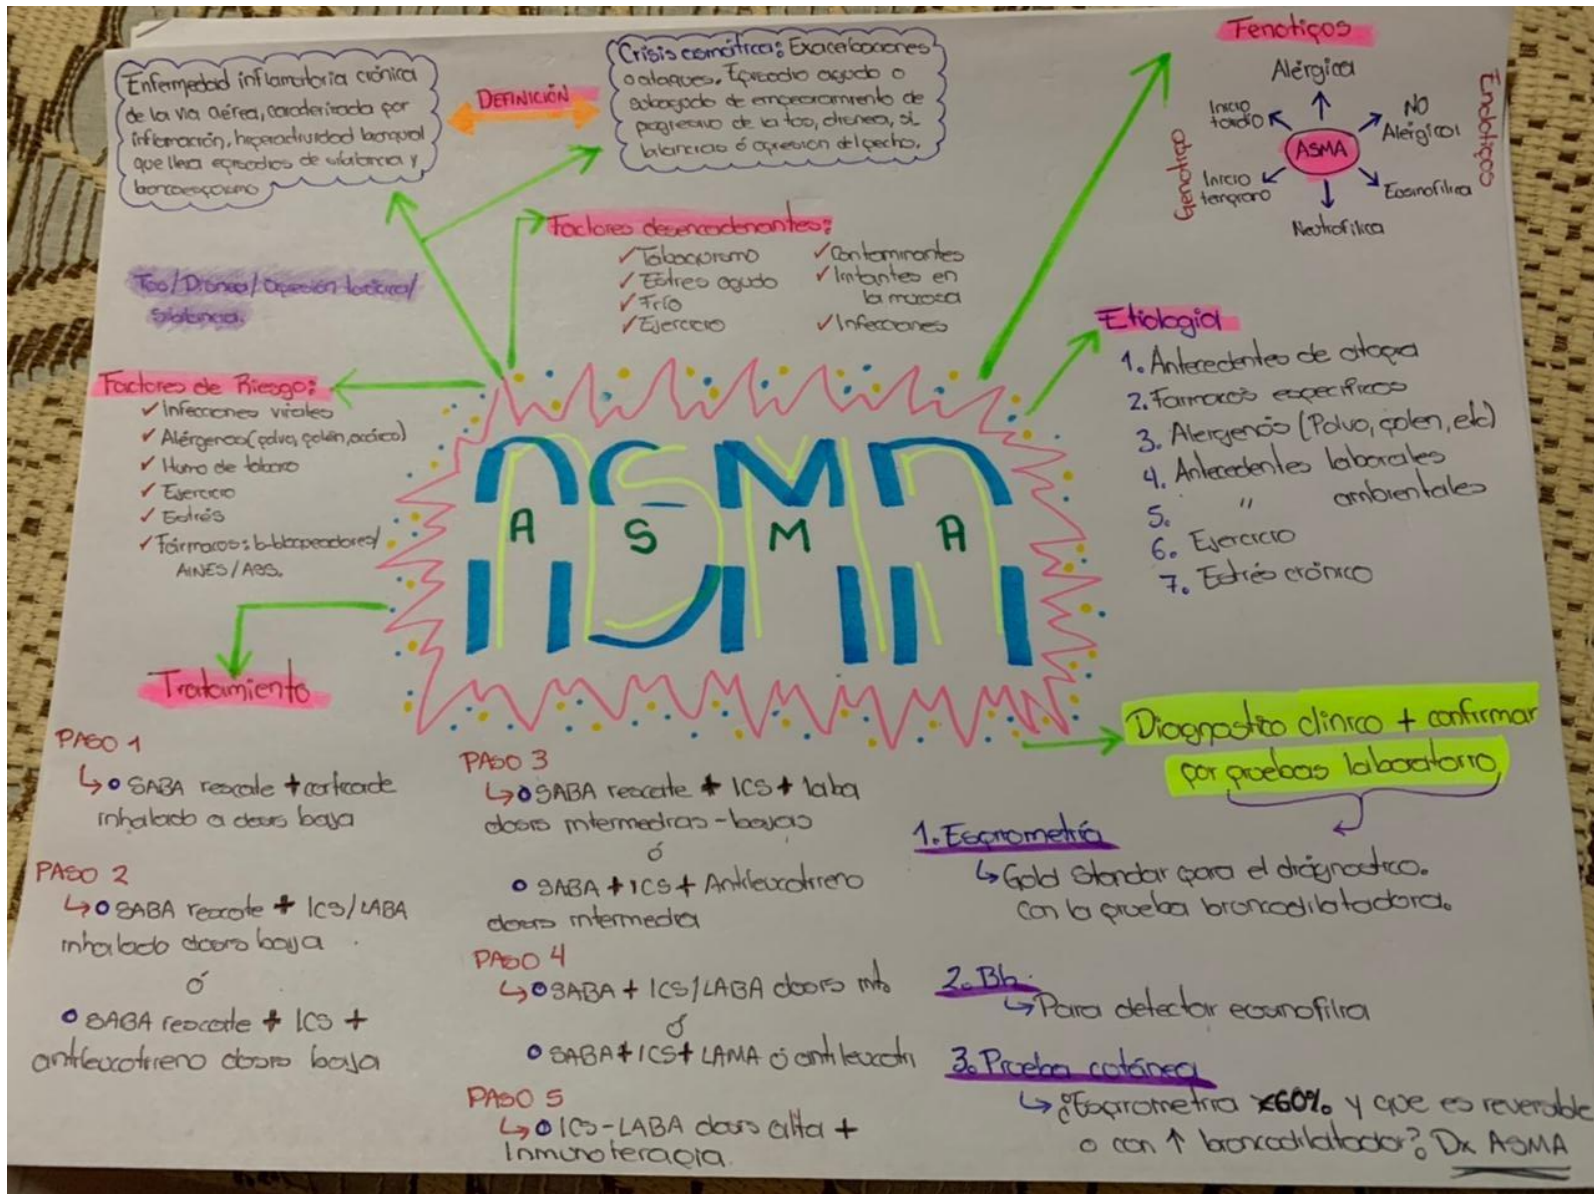 Enfermedad inflamatoria crónica
de la via aérea, caracterizada por
inflamación, hiperactividad bronquial
que lleva episodios de sibilancia y
broncoespasmo
DEFINICIÓN
Crisis asmática: Exacerbaciones
o ataques. Episodio agudo o
subagudo de empeoramiento de
progresivo de la tos, disnea, si
bilancias ó opresion del pecho.
Fenotipos
Alérgica
NO
Alérgico
Eosinofilica
Neutrofilica
Inicio
temprano
Inicio
tardío
ASMA
Genotipo
Endotipos
Tos/Disnea/Opresión torácica/
Sibilancia.
Factores desencadenantes:
✓ Tabaquismo
✓ Estres agudo
✓ Frío
✓ Ejercicio
✓ Contaminantes
✓ Irritantes en
la mucosa
✓ Infecciones
Factores de Riesgo:
✓ Infecciones virales
✓ Alérgenos (polvo, polén, ácaros)
✓ Humo de tabaco
✓ Ejercicio
✓ Estrés
✓ Fármacos: b-bloqueadores/
AINES/AAS.
Etiologia
1. Antecedentes de atopia
2. Farmacos especificos
3. Alergenos (Polvo, polen, etc)
4. Antecedentes laborales
5. " ambientales
6. Ejercicio
7. Estrés crónico
ASMA
A S M A
Tratamiento
PASO 1
↳ SABA rescate + corticoide
inhalado a dosis baja
PASO 2
↳ SABA rescate + ICS/LABA
inhalado dosis baja
ó
SABA rescate + ICS +
antileucotrieno dosis baja
PASO 3
↳ SABA rescate + ICS + laba
dosis intermedias-bajas
ó
SABA + ICS + Antileucotrieno
dosis intermedia
PASO 4
↳ SABA + ICS/LABA dosis int.
ó
SABA + ICS + LAMA ó antileucotri
PASO 5
↳ ICS-LABA dosis alta +
Inmunoterapia.
Diagnostico clinico + confirmar
por pruebas laboratorio
1. Espirometría
↳ Gold Standar para el diágnostico.
Con la prueba broncodilatadora.
2. Bh.
↳ Para detectar eosinofilia
3. Prueba cutánea
↳ ¿Espirometria <60% y que es reversible
o con ↑ broncodilatador? Dx ASMA